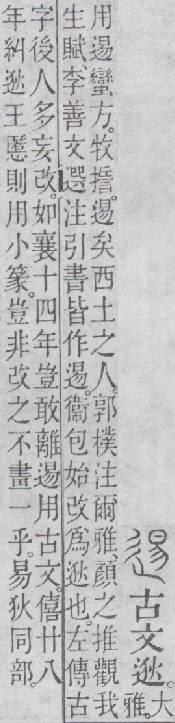 逷古文逖。大
雅
用逷蠻方。牧誓。逷矣西土之人。郭樸注爾雅、顏之推觀我
生賦李善文選注引書皆作逷。衞包始改爲逖也。左傳古
字後人多妄改。如襄十四年豈敢離逷用古文。僖廿八
年糾逖王慝則用小篆。豈非改之不畫一乎。易狄同部。